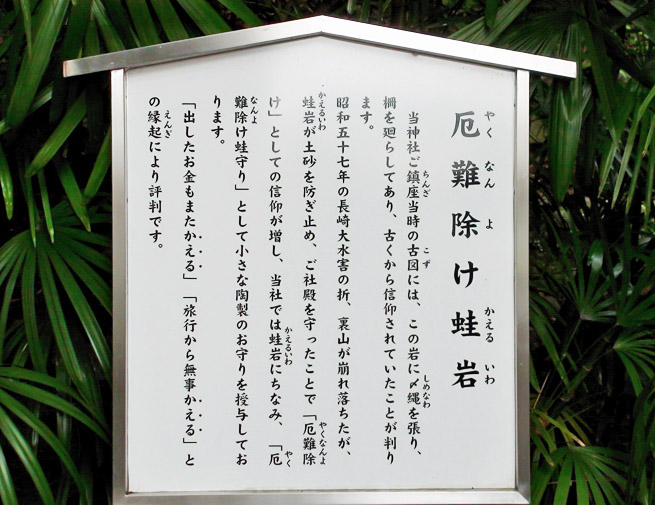 厄難除け蛙岩
当神社ご鎮座当時の古図には、この岩に〆縄を張り、
柵を廻らしてあり、古くから信仰されていたことが判り
ます。
昭和五十七年の長崎大水害の折、裏山が崩れ落ちたが、
蛙岩が土砂を防ぎ止め、ご社殿を守ったことで「厄難除
け」としての信仰が増し、当社では蛙岩にちなみ、「厄
難除け蛙守り」として小さな陶製のお守りを授与してお
ります。
「出したお金もまたかえる」「旅行から無事かえる」と
の縁起により評判です。